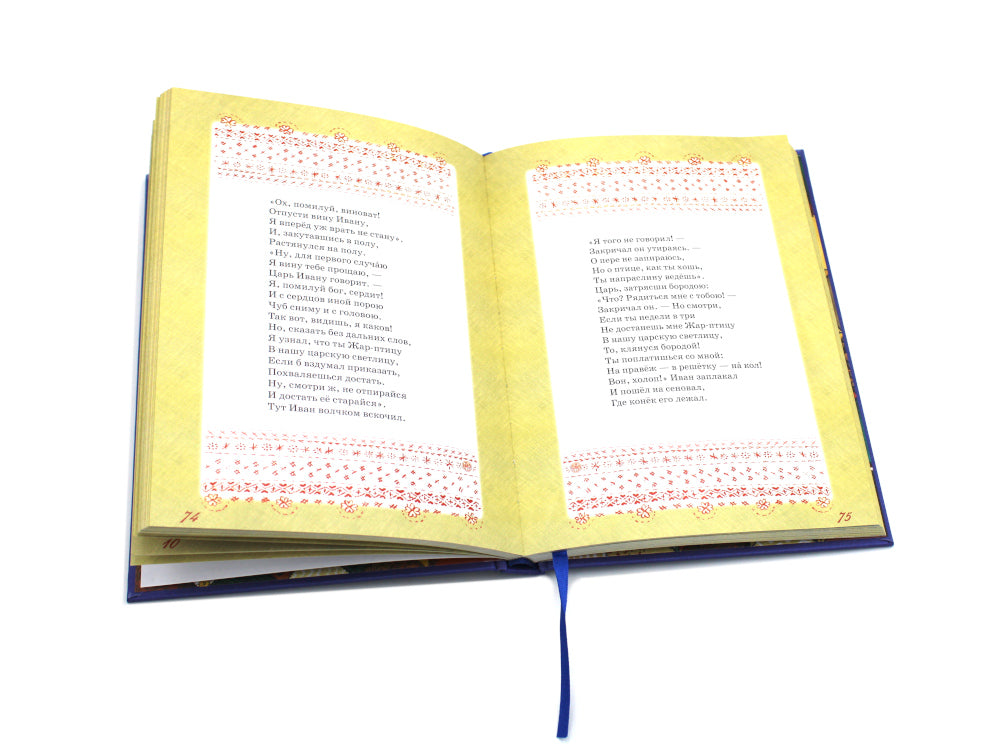 «Ох, помилуй, виноват!
Отпусти вину Ивану,
Я вперёд уж врать не стану».
И, закутавшись в полу,
Растянулся на полу.
«Ну, для первого случáю
Я вину тебе прощаю, —
Царь Ивану говорит. —
Я, помилуй бог, сердит!
И с сердцов иной порою
Чуб сниму и с головою.
Так вот, видишь, я каков!
Но, сказать без дальних слов,
Я узнал, что ты Жар-птицу
В нашу царскую светлицу,
Если б вздумал приказать,
Похваляешься достать.
Ну, смотри ж, не отпирайся
И достать её старайся».
Тут Иван волчком вскочил.
74
10
«Я того не говорил! —
Закричал он утираясь. —
О пере не запираюсь,
Но о птице, как ты хошь,
Ты напраслину ведёшь».
Царь, затрясши бородою:
«Что? Рядиться мне с тобою! —
Закричал он. — Но смотри,
Если ты недели в три
Не достанешь мне Жар-птицу
В нашу царскую светлицу,
То, клянуся бородой!
Ты поплатишься со мной:
На правёж — в решётку — нá кол!
Вон, холоп!» Иван заплакал
И пошёл на сеновал,
Где конёк его лежал.
75